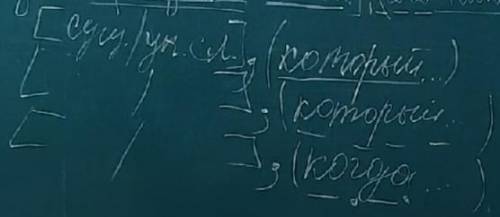 [сущ/ук. сл.], (который...)
[ / ], (который...)
[ / ], (когда... )